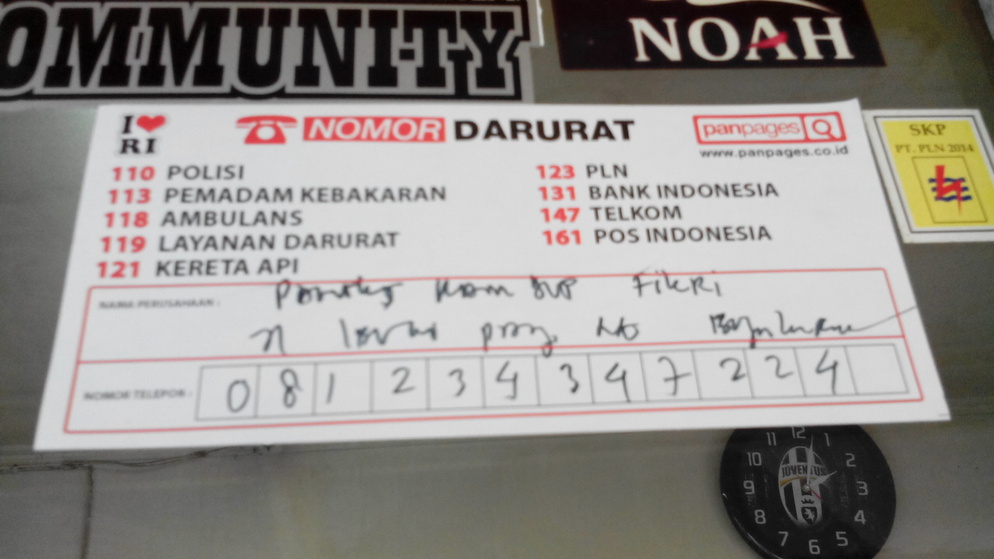 OMMUNITY
NOAH
I ❤ RI
NOMOR DARURAT
panpages
www.panpages.co.id
110 POLISI
113 PEMADAM KEBAKARAN
118 AMBULANS
119 LAYANAN DARURAT
121 KERETA API
123 PLN
131 BANK INDONESIA
147 TELKOM
161 POS INDONESIA
NAMA PERUSAHAAN :
Fikri
NOMOR TELEPON :
SKP
PT. PLN 2014
JUVENTUS
12 1 2 3 4 5 6 7 8 9 10 11